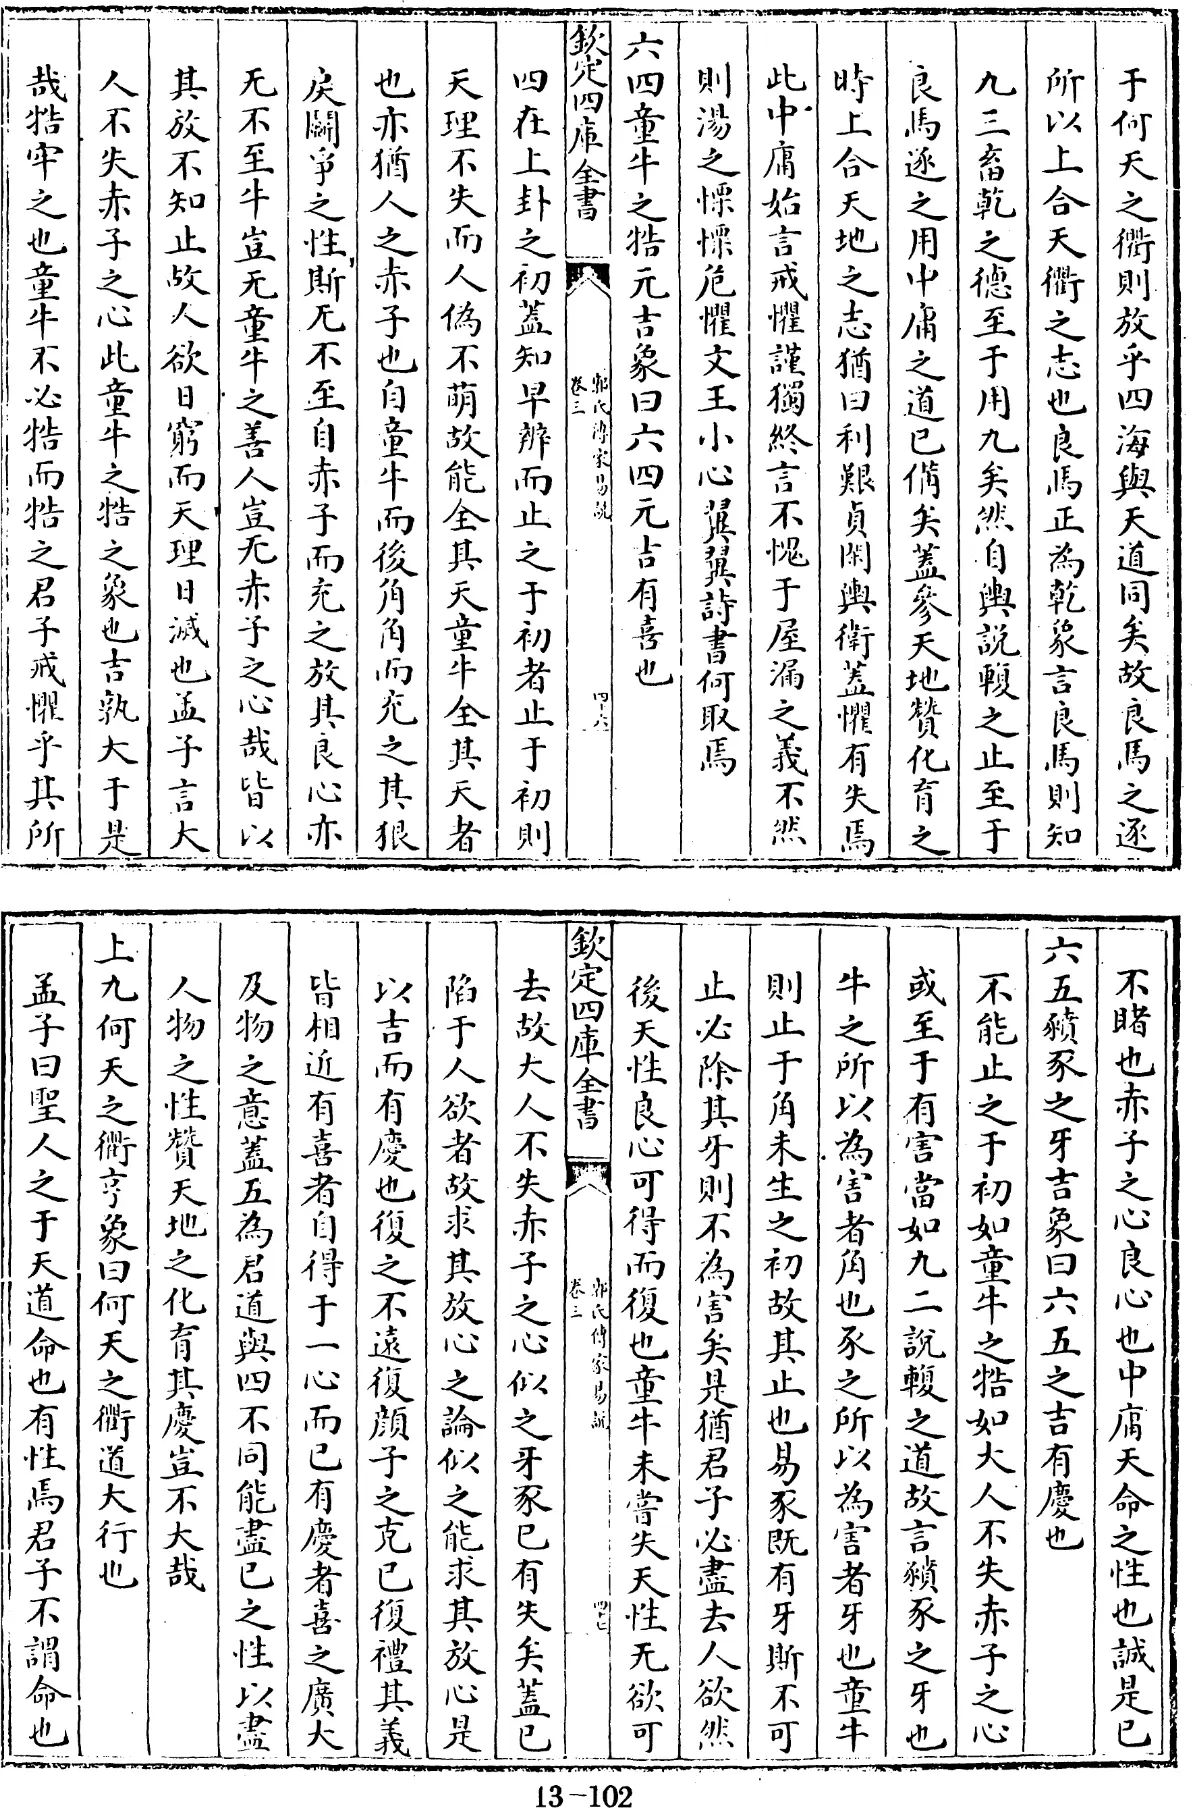 于何天之衢則放乎四海與天道同矣故良馬之逐
所以上合天衢之志也良馬正為乾象言良馬則知
九三畜乾之德至于用九矣然自輿說輹之止至于
良馬逐之用中庸之道已備矣蓋參天地贊化育之
時上合天地之志猶曰利艱貞閑輿衛蓋懼有失焉
此中庸始言戒懼謹獨終言不愧于屋漏之義不然
則湯之慄慄危懼文王小心翼翼詩書何取焉
六四童牛之牿元吉象曰六四元吉有喜也
欽定四庫全書
郭氏傳家易說
卷三
四十六
四在上卦之初蓋知早辨而止之于初者止于初則
天理不失而人偽不萌故能全其天童牛全其天者
也亦猶人之赤子也自童牛而後角角而充之其狠
戾鬭爭之性斯无不至自赤子而充之放其良心亦
无不至牛豈无童牛之善人豈无赤子之心哉皆以
其放不知止故人欲日窮而天理日滅也孟子言大
人不失赤子之心此童牛之牿之象也吉孰大于是
哉牿牢之也童牛不必牿而牿之君子戒懼乎其所
不睹也赤子之心良心也中庸天命之性也誠是已
六五豶豕之牙吉象曰六五之吉有慶也
不能止之于初如童牛之牿如大人不失赤子之心
或至于有害當如九二說輹之道故言豶豕之牙也
牛之所以為害者角也豕之所以為害者牙也童牛
則止于角未生之初故其止也易豕既有牙斯不可
止必除其牙則不為害矣是猶君子必盡去人欲然
後天性良心可得而復也童牛未嘗失天性无欲可
欽定四庫全書
郭氏傳家易說
卷三
四十七
去故大人不失赤子之心似之牙豕已有失矣蓋已
陷于人欲者故求其放心之論似之能求其放心是
以吉而有慶也復之不遠復顏子之克已復禮其義
皆相近有喜者自得于一心而已有慶者喜之廣大
及物之意蓋五為君道與四不同能盡已之性以盡
人物之性贊天地之化育其慶豈不大哉
上九何天之衢亨象曰何天之衢道大行也
孟子曰聖人之于天道命也有性焉君子不謂命也
13-102